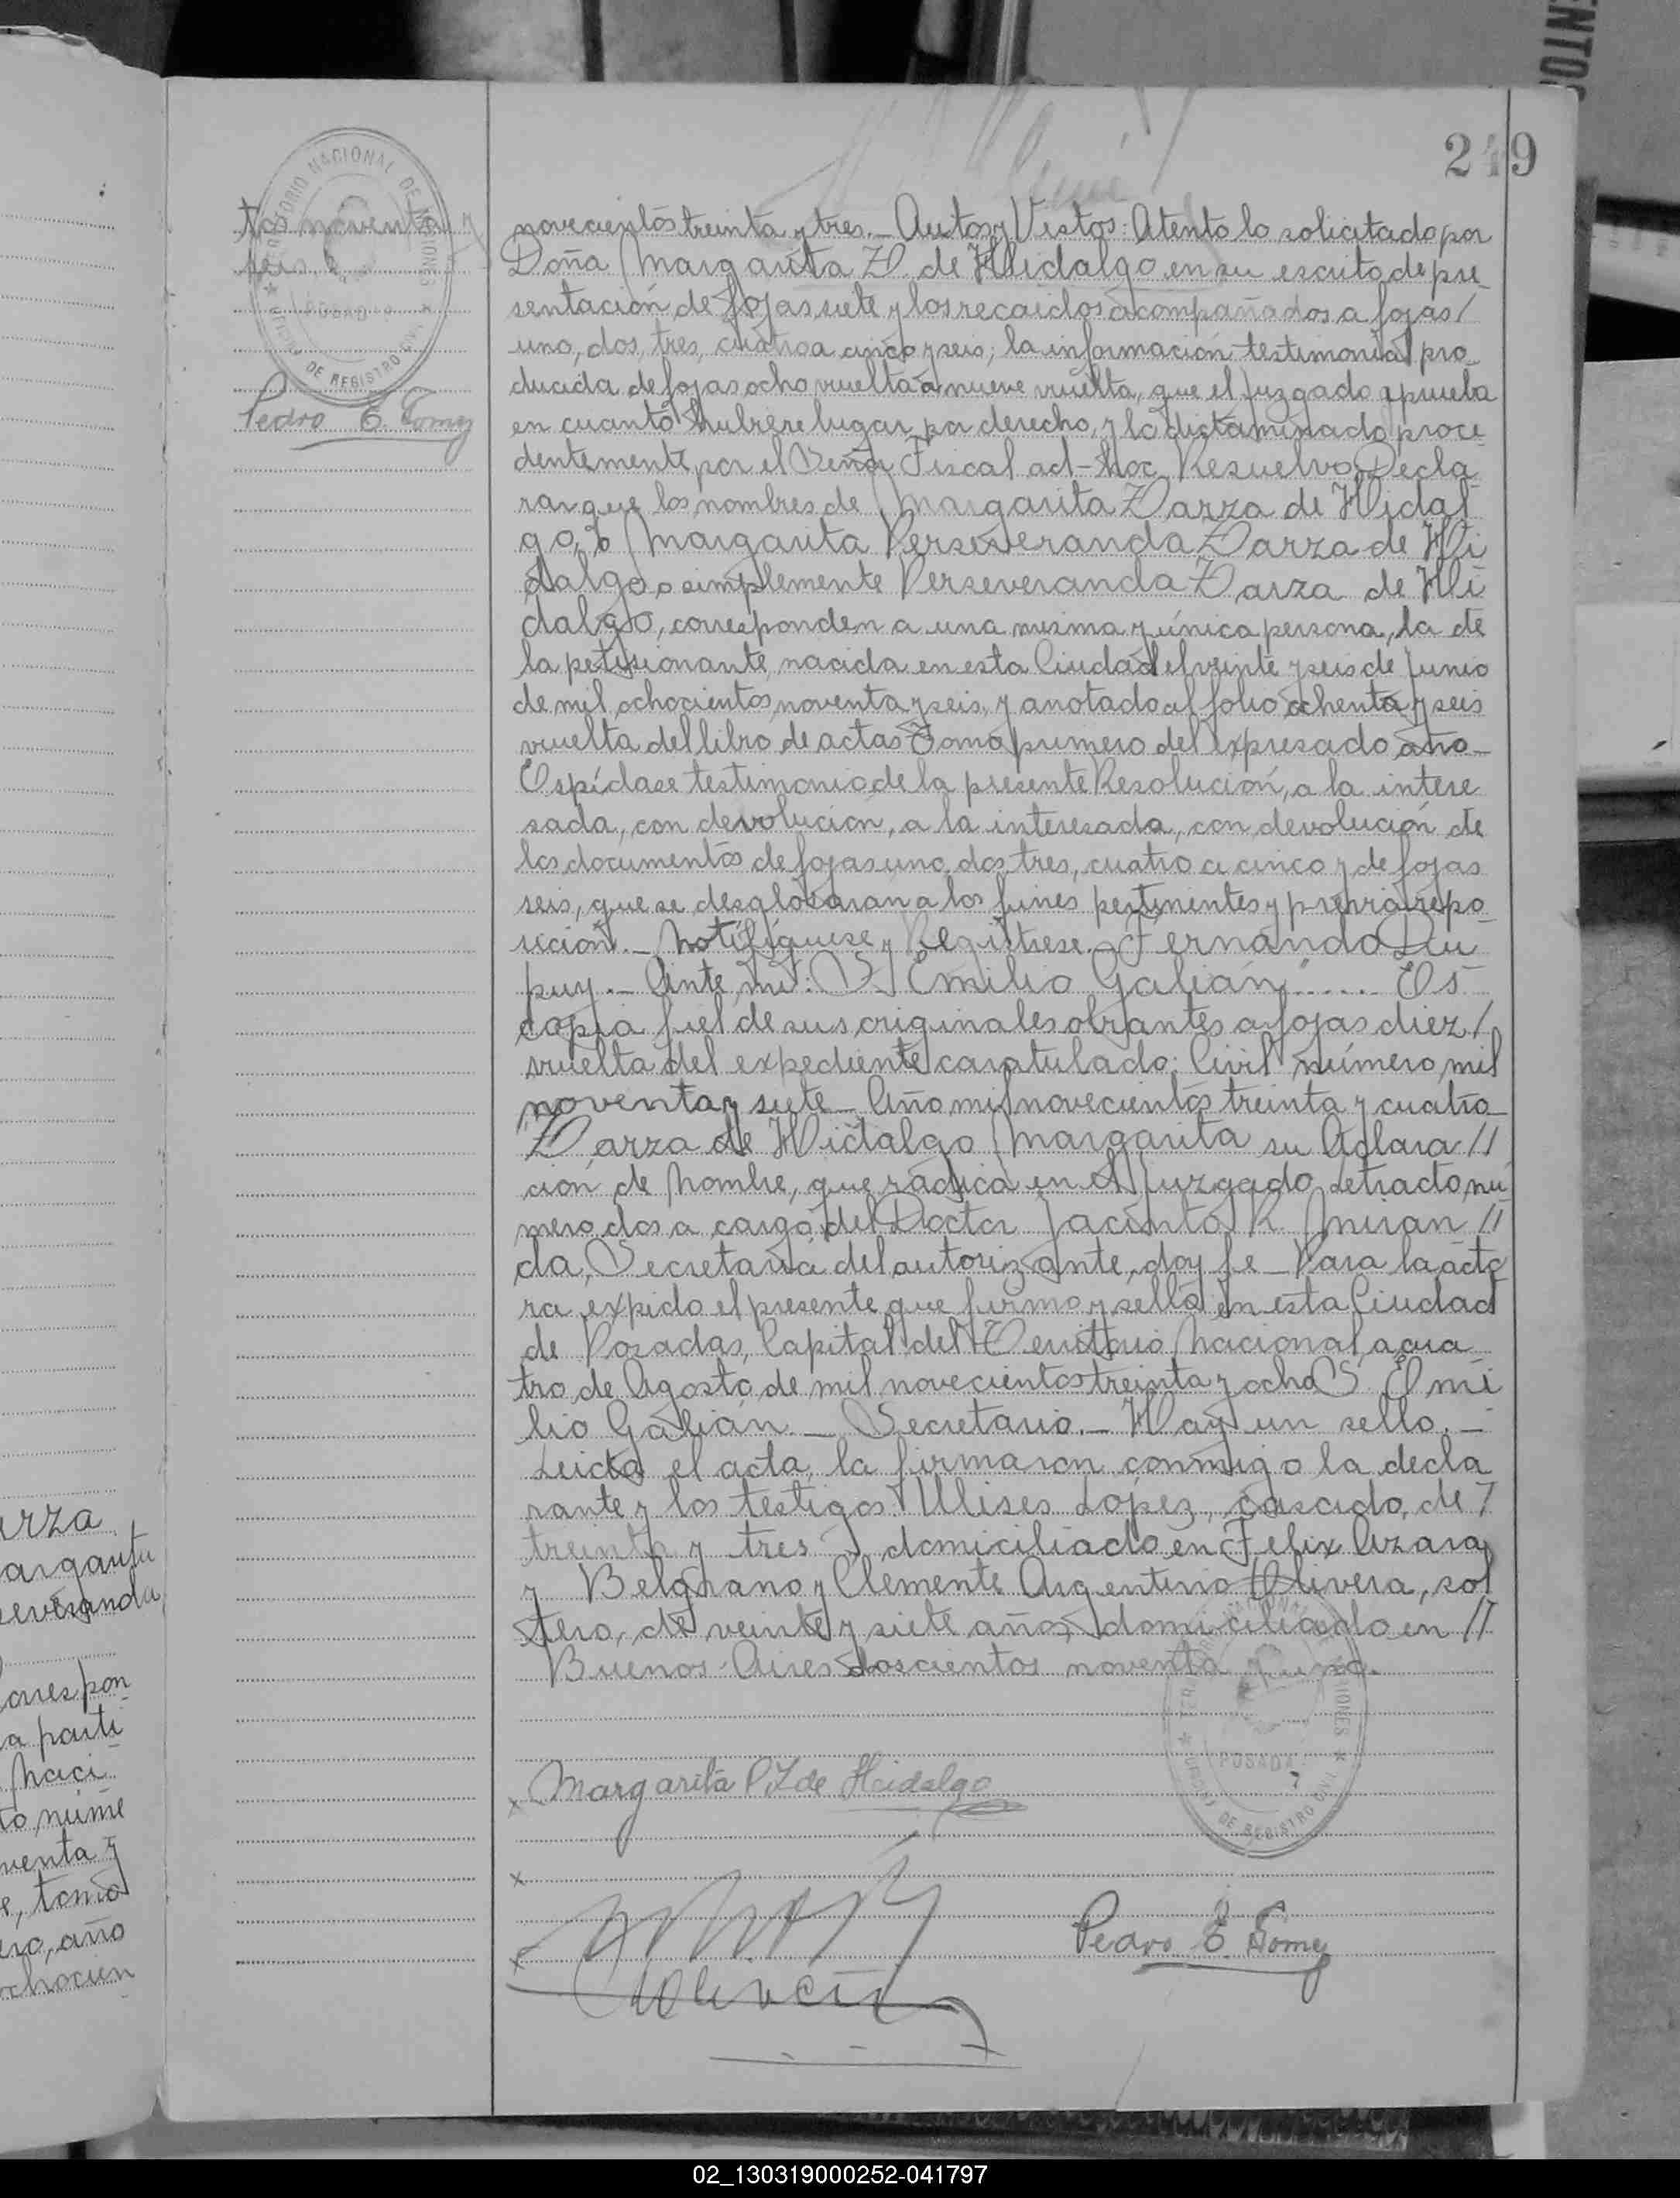 ENTOS
249
tos noventa y
seis
TERRITORIO NACIONAL DE MISIONES
POSADAS
OFICINA DE REGISTRO CIVIL
Pedro E. Gomez
novecientos treinta y tres.- Autos y Vistos: Atento lo solicitado por
Doña Margarita Z. de Hidalgo en su escrito de pre
sentación de fojas siete y los recaidos acompañados a fojas /
uno, dos, tres, cuatro a cinco y seis; la información testimonial pro
ducida de fojas ocho vuelta a nueve vuelta, que el Juzgado aprueba
en cuanto hubiere lugar por derecho, y lo dictaminado proce
dentemente por el Señor Fiscal ad-hoc Resuelvo: Decla
rar que los nombres de Margarita Zarza de Hidal
go, o Margarita Perseveranda Zarza de Hi
dalgo o simplemente Perseveranda Zarza de Hi
dalgo, corresponden a una misma y única persona, la de
la petisionante, nacida en esta Ciudad el veinte y seis de Junio
de mil ochocientos noventa y seis, y anotado al folio ochenta y seis
vuelta del libro de actas Tomo primero del expresado año_
Espídase testimonio de la presente Resolución, a la intere
sada, con devolución, a la interesada, con devolución de
los documentos de fojas uno, dos, tres, cuatro a cinco y de fojas
seis, que se desglosaran a los fines pertinentes y previa repo
sición._ Notifíquese y Regístrese. Fernando Du
puy._ Ante mi: S. Emilio Galián" ..... Es
copia fiel de sus originales obrantes a fojas diez /
vuelta del expediente caratulado: Civil número mil
noventa y siete_ Año mil novecientos treinta y cuatro_
Zarza de Hidalgo Margarita su Aclara //
ción de Nombre, que radica en el Juzgado Letracto nú
mero dos a cargo del Doctor Jacinto R. Miran //
da, Secretaría del autorizante, doy fe_ Para la acto
ra expido el presente que firmo y sello en esta Ciudad
de Posadas, Capital del Territorio Nacional a cua
tro de Agosto de mil novecientos treinta y ocho S. Emi
lio Galián._ Secretario._ Hay un sello._
Leida el acta, la firmaron conmigo la decla
rante y los testigos: Ulises López, casado, de /
treinta y tres domiciliado en Felix Azara
y Belgrano y Clemente Argentino Olivera, sol
tero, de veinte y siete años, domiciliado en //
Buenos Aires doscientos noventa y uno.
TERRITORIO NACIONAL DE MISIONES
POSADAS
OFICINA DE REGISTRO CIVIL
Margarita P Z de Hidalgo
Pedro E. Gomez
arza
argarita
severanda
corespon
a parti
Naci
to núme
venta y
e, tomo
ero, año
ochocien
02_130319000252-041797